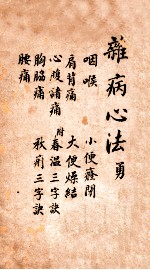 雜病心法 勇
咽喉
肩背痛
心腹諸痛
胸脇痛
腰痛
小便癃閉
大便燥結
附春温三字訣
秋痢三字訣